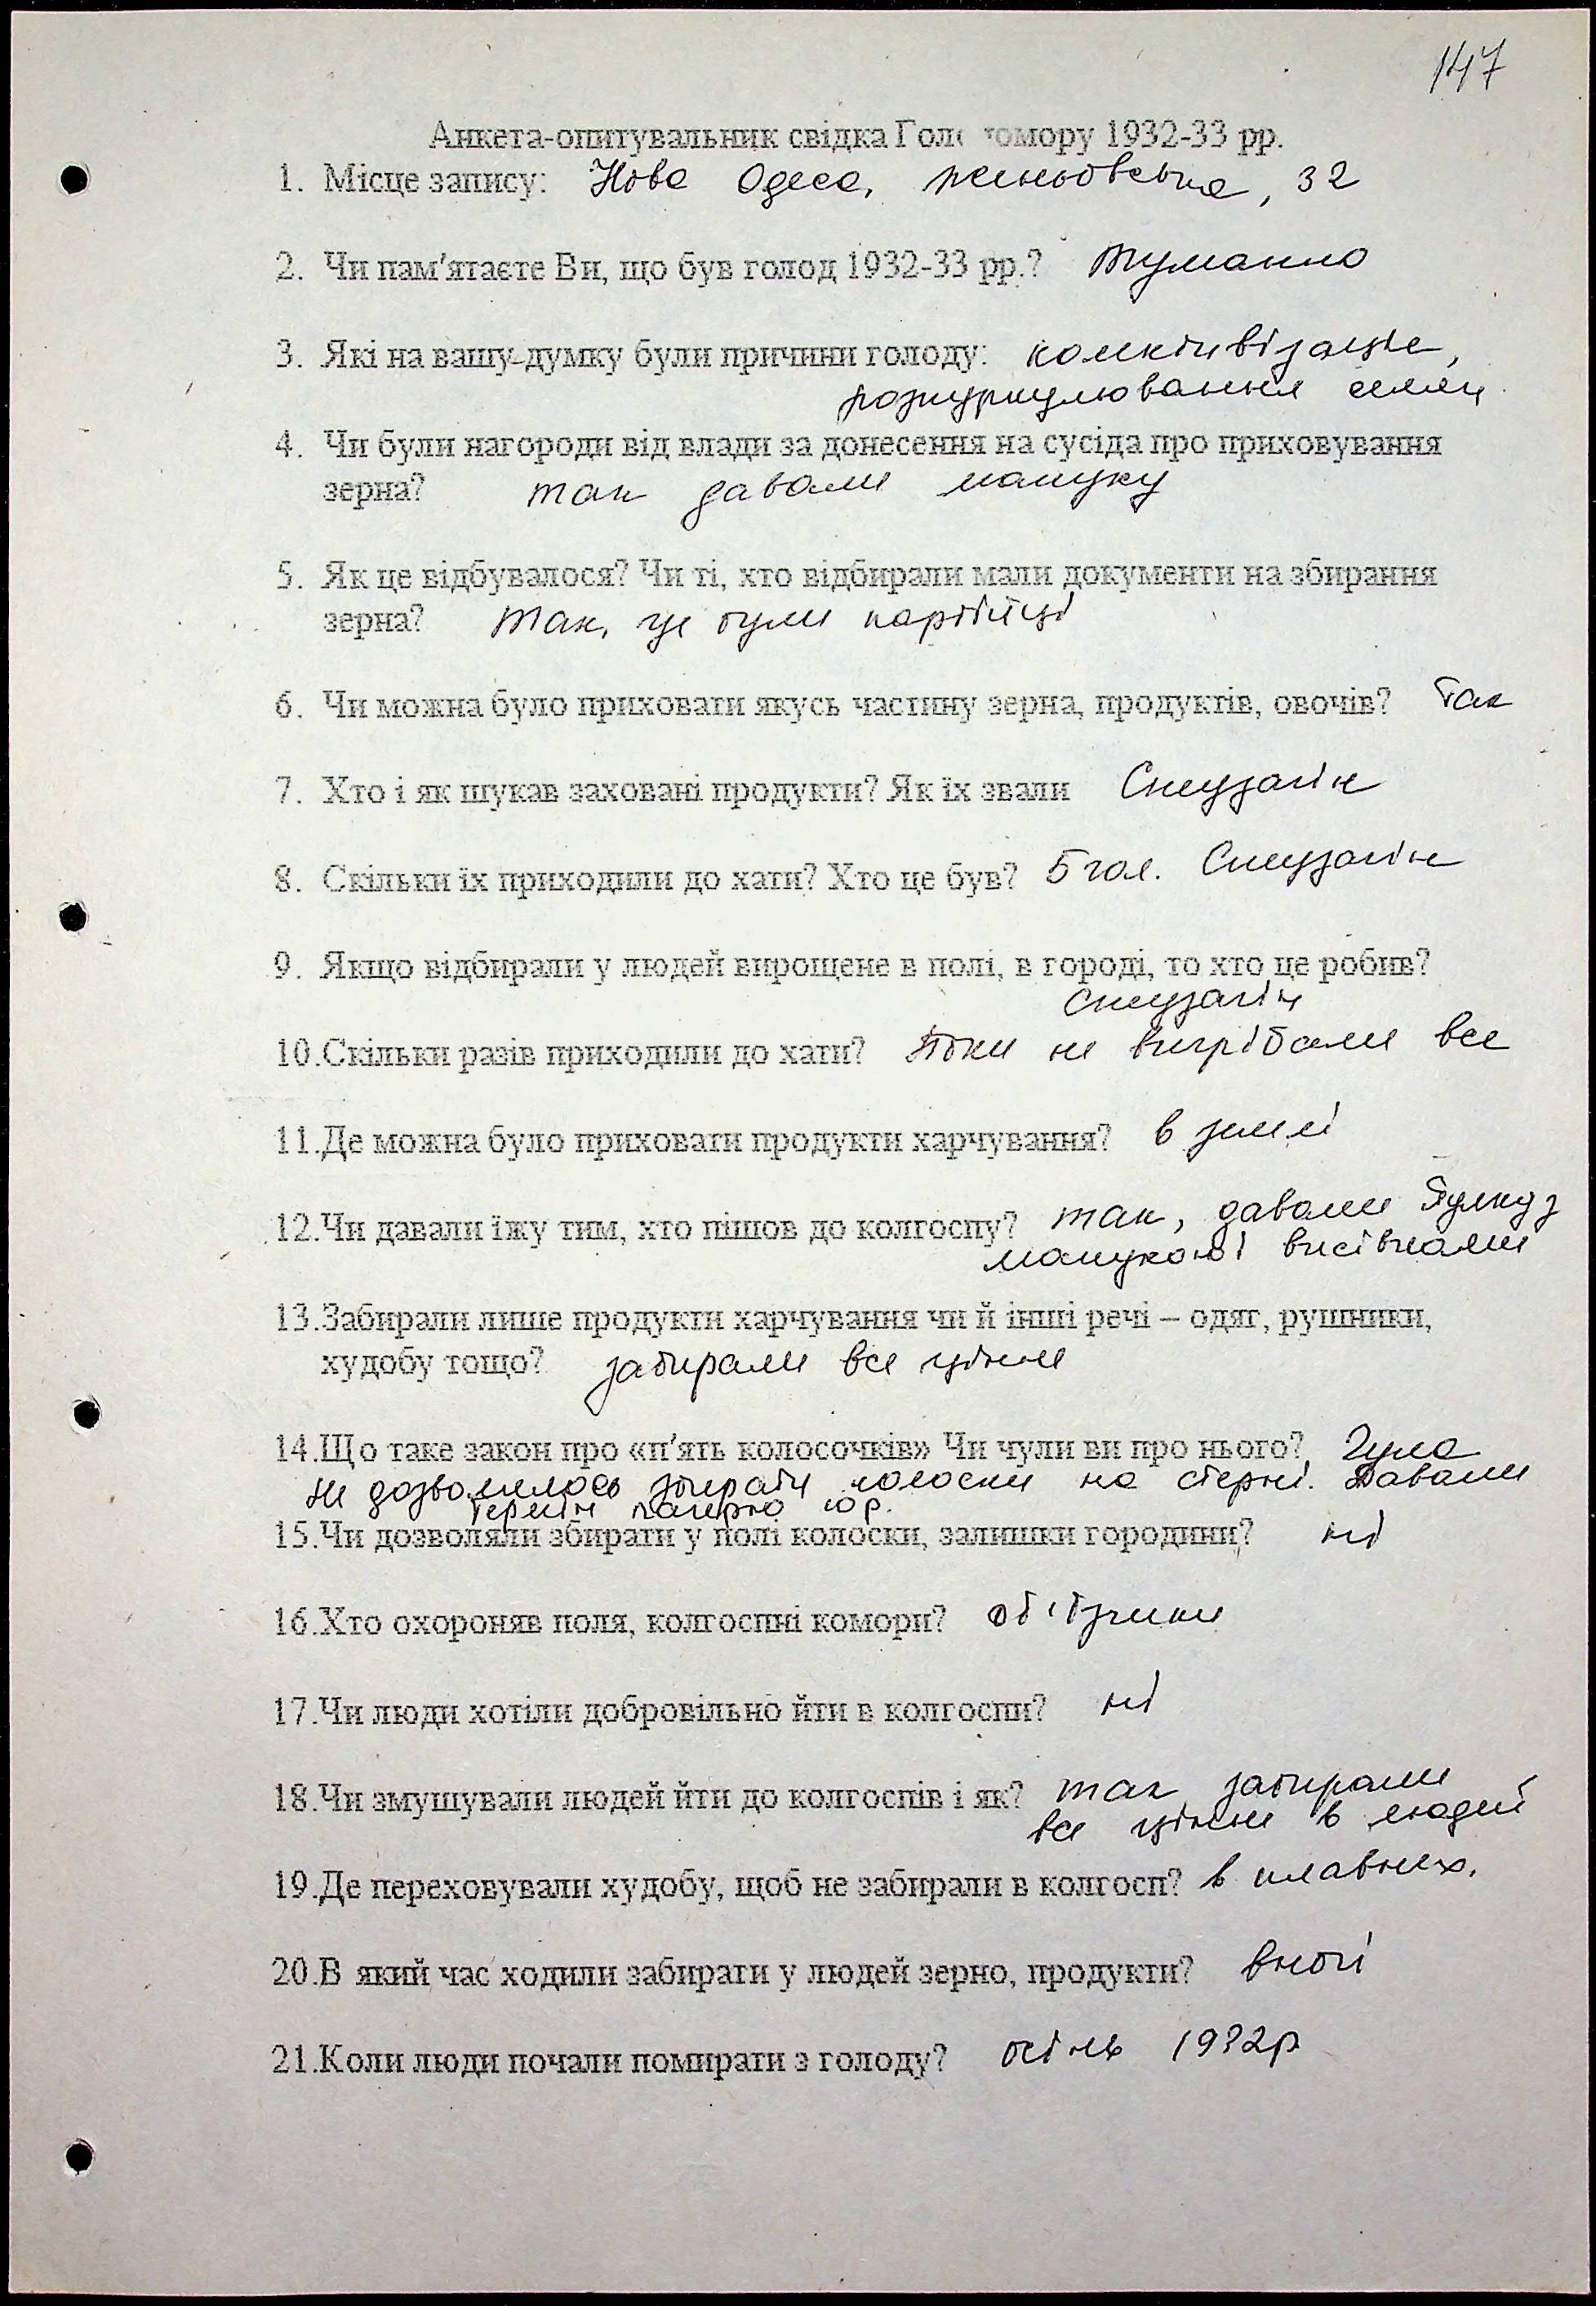 147
Анкета-опитувальник свідка Голодомору 1932-33 рр.
1. Місце запису: Нова Одеса, 32
2. Чи пам'ятаєте Ви, що був голод 1932-33 рр.? Туманно
3. Які на вашу думку були причини голоду: колективізація,
розкуркулювання селян
4. Чи були нагороди від влади за донесення на сусіда про приховування
зерна? так давали макуху
5. Як це відбувалося? Чи ті, хто відбирали мали документи на збирання
зерна? Так, це були партійці
6. Чи можна було приховати якусь частину зерна, продуктів, овочів? Так
7. Хто і як шукав заховані продукти? Як їх звали Спецзагін
8. Скільки їх приходили до хати? Хто це був? 5 чол. Спецзагін
9. Якщо відбирали у людей вирощене в полі, в городі, то хто це робив?
Спецзагін
10.Скільки разів приходили до хати? Поки не вигрібали все
11.Де можна було приховати продукти харчування? в землі
12.Чи давали їжу тим, хто пішов до колгоспу? так, давали булку з
макухою і висівками
13.Забирали лише продукти харчування чи й інші речі – одяг, рушники,
худобу тощо? забирали все цінне
14.Що таке закон про «п'ять колосочків» Чи чули ви про нього? Чула
Не дозволялось збирати колоски на стерні. Давали
термін 10 р.
15.Чи дозволяли збирати у полі колоски, залишки городини? ні
16.Хто охороняв поля, колгоспні комори? об'їзчики
17.Чи люди хотіли добровільно йти в колгоспи? ні
18.Чи змушували людей йти до колгоспів і як? так забирали
все цінне в людей
19.Де переховували худобу, щоб не забирали в колгосп? в плавнях.
20.В який час ходили забирати у людей зерно, продукти? вночі
21.Коли люди почали помирати з голоду? осінь 1932р